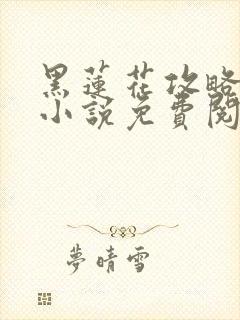 黑蓮花攻略
小說免費閱
夢晴雪